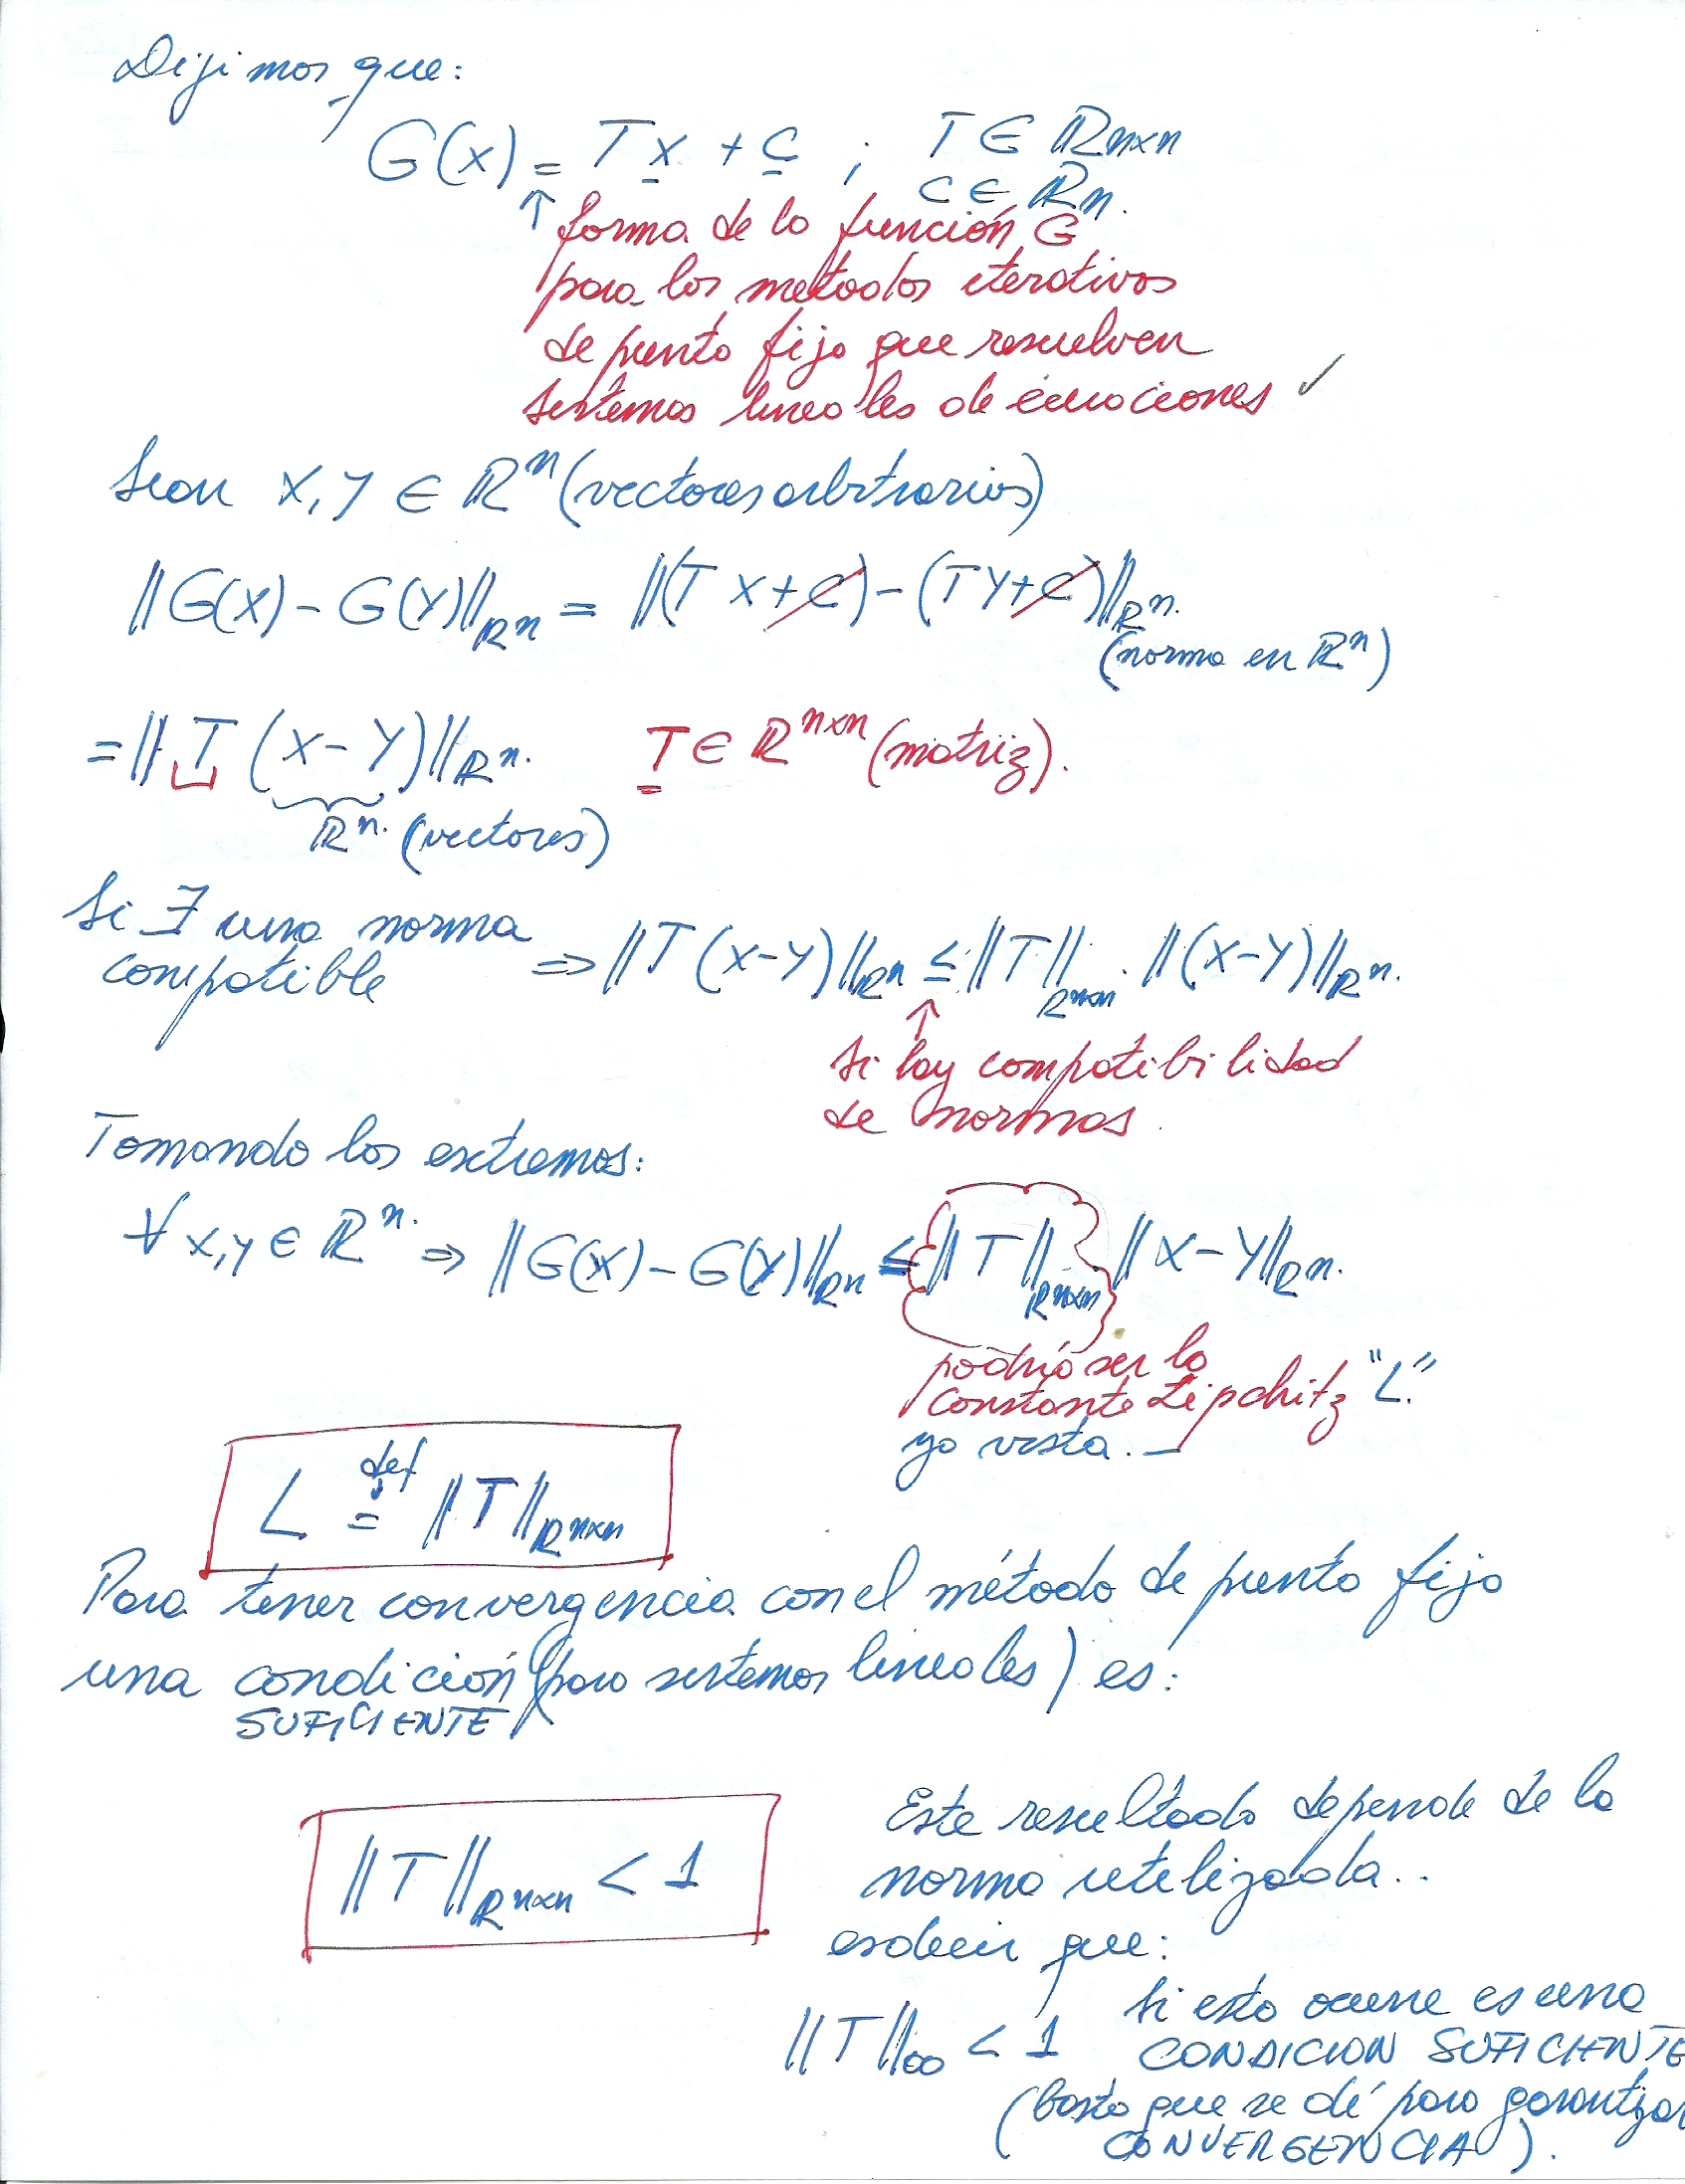 Dijimos que:
G(x) = T x + c ; T ∈ ℝn×n
c ∈ ℝn.
↑ forma de la función G
para los métodos iterativos
de punto fijo que resuelven
sistemas lineales de ecuaciones ✓
Sean x, y ∈ ℝⁿ (vectores arbitrarios)
‖G(x) - G(y)‖ℝⁿ = ‖(T x + c) - (T y + c)‖ℝⁿ.
(norma en ℝⁿ)
= ‖T (x - y)‖ℝⁿ. T ∈ ℝⁿˣⁿ (matriz).
ℝⁿ. (vectores)
Si ∃ una norma
compatible ⇒ ‖T (x-y)‖ℝⁿ ≤ ‖T‖ℝⁿˣⁿ . ‖(x-y)‖ℝⁿ.
↑
Si hay compatibilidad
de normas.
Tomando los extremos:
∀ x, y ∈ ℝⁿ. ⇒ ‖G(x) - G(y)‖ℝⁿ ≤ ‖T‖ℝⁿˣⁿ ‖x - y‖ℝⁿ.
podría ser la
constante Lipchitz "L".
ya vista. —
L def= ‖T‖ℝⁿˣⁿ
Para tener convergencia con el método de punto fijo
una condición (para sistemas lineales) es:
SUFICIENTE
‖T‖ℝⁿˣⁿ < 1
Este resultado depende de la
norma utilizada..
es decir que:
‖T‖∞ < 1 Si esto ocurre es una
CONDICION SUFICIENTE
(basta que se dé para garantizar
CONVERGENCIA).